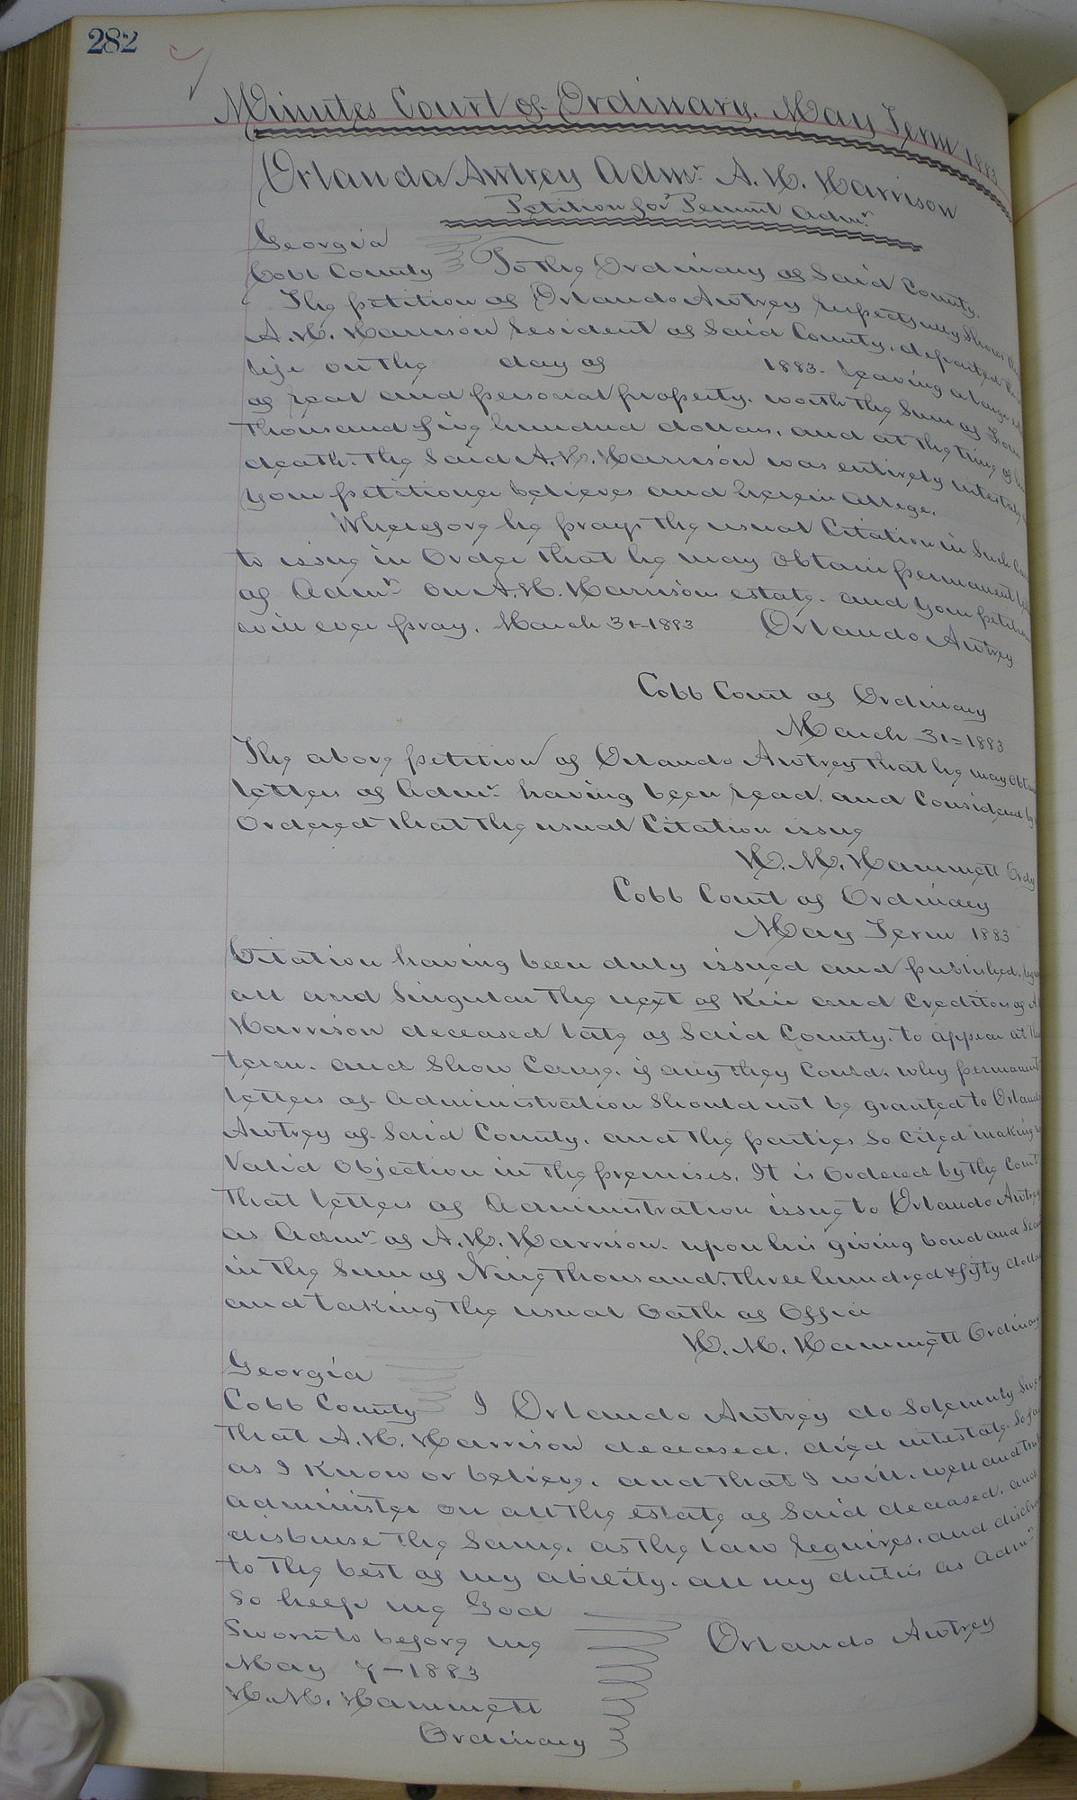 282
Minutes Court of Ordinary. May Term 1883
Orlando Awtrey Admr. A. H. Harrison
Petition for Permnt Admr.
Georgia
Cobb County To the Ordinary of Said County.
The petition of Orlando Awtrey Respectfully Shows
A. H. Harrison Resident of Said County, departed
life on the day of 1883. leaving a large
of real and personal property. worth the Sum of
thousand five hundred dollars, and at the time of
death. the Said A. H. Harrison was entirely intestate
your petitioner believes and herein allege.
Wherefore he prays the usual Citation in Such
to issue in Order that he may obtain permanent
of Admr. on A. H. Harrison estate. and your
will ever pray. March 31-1883 Orlando Awtrey
Cobb Court of Ordinary
March 31=1883
The above petition of Orlando Awtrey that he may
letters of Admr. having been read, and Considered
Ordered that the usual Citation issue
H. M. Hammett Ordy
Cobb Court of Ordinary
May Term 1883
Citation having been duly issued and published,
all and Singular the next of Kin and Creditors of
Harrison deceased late of Said County, to appear at
term. and Show Cause, if any they Could. why permanent
letters of Administration Should not be granted to Orlando
Awtrey of Said County. and the parties So Cited making
Valid Objection in the premises, It is Ordered by the Court
That letters of Administration issue to Orlando Awtrey
as Admr. of A. H. Harrison. upon his giving bond and
in the Sum of Nine thousand, three hundred & fifty dollars
and taking the usual Oath of Office
H. M. Hammett Ordinary
Georgia
Cobb County I Orlando Awtrey do Solemnly
that A. H. Harrison deceased, died intestate. So far
as I Know or believe, and that I will, well and
administer on all the estate of Said deceased. and
disburse the Same. as the law Requires. and
to the best of my ability. all my duties as Admr.
So help me God
Sworn to before me Orlando Awtrey
May 7-1883
H. M. Hammett
Ordinary